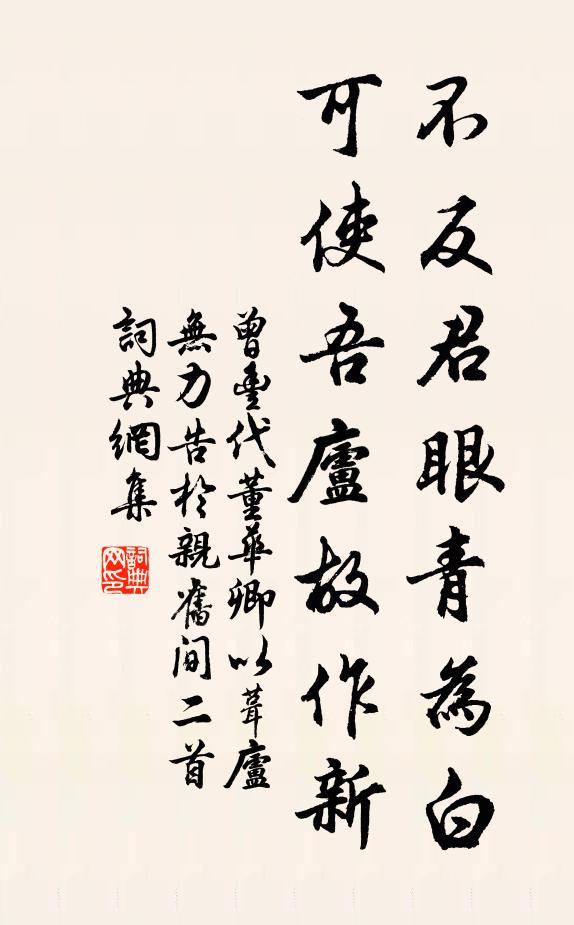 不反君眼青為白
可使吾廬故作新
曾豊代董華卿以葺廬
無力告於親舊間二首
詞典網集
詞典网印